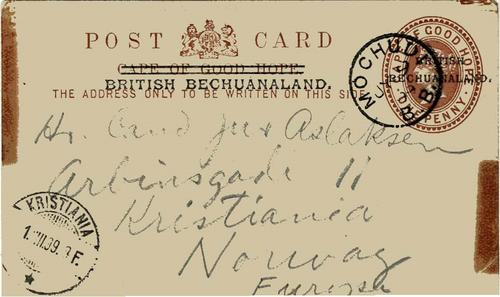 POST CARD
CAPE OF GOOD HOPE.
BRITISH BECHUANALAND.
THE ADDRESS ONLY TO BE WRITTEN ON THIS SIDE
CAPE OF GOOD HOPE
BRITISH
BECHUANALAND.
PENNY
MOCHUDI
Hr. Cand jur Aslaksen
Arbinsgade 11
Kristiania
Norway
Europa
KRISTIANIA